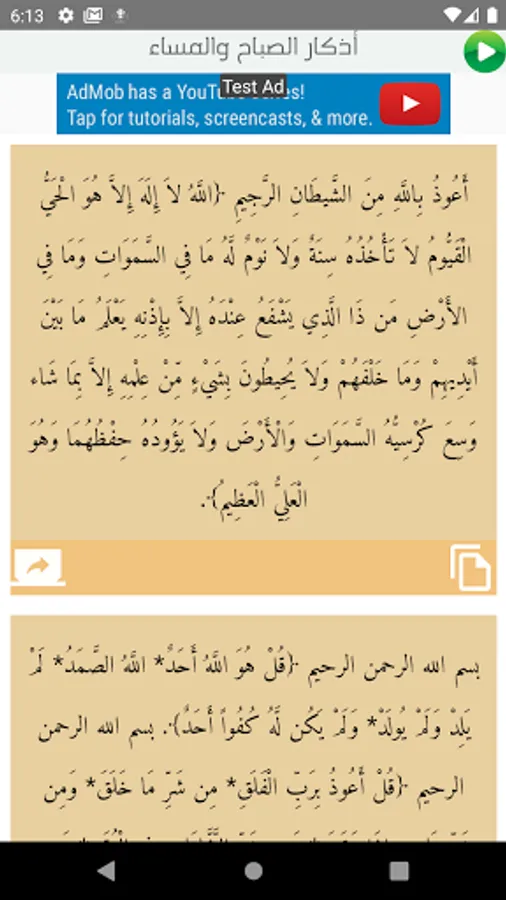 6:13
أذكار الصباح والمساء
AdMob has a YouTube series!
Test Ad
Tap for tutorials, screencasts, & more.
أَعُوذُ بِاللَّهِ مِنَ الشَّيطَانِ الرَّجِيمِ ﴿اللَّهُ لاَ إِلَهَ إِلاَّ هُوَ الْحَيُّ
الْقَيُّومُ لاَ تَأْخُذُهُ سِنَةٌ وَلاَ نَوْمٌ لَّهُ مَا فِي السَّمَوَاتِ وَمَا فِي
الأَرْضِ مَن ذَا الَّذِي يَشْفَعُ عِنْدَهُ إِلاَّ بِإِذْنِهِ يَعْلَمُ مَا بَيْنَ
أَيْدِيهِمْ وَمَا خَلْفَهُمْ وَلاَ يُحِيطُونَ بِشَيْءٍ مِّنْ عِلْمِهِ إِلاَّ بِمَا شَاء
وَسِعَ كُرْسِيُّهُ السَّمَوَاتِ وَالْأَرْضَ وَلاَ يَؤُودُهُ حِفْظُهُمَا وَهُوَ
الْعَلِيُّ الْعَظِيمُ﴾.
بسم الله الرحمن الرحيم ﴿قُلْ هُوَ اللَّهُ أَحَدٌ* اللَّهُ الصَّمَدُ* لَمْ
يَلِدْ وَلَمْ يُولَدْ* وَلَمْ يَكُن لَّهُ كُفُواً أَحَدٌ﴾. بسم الله الرحمن
الرحيم ﴿قُلْ أَعُوذُ بِرَبِّ الْفَلَقِ* مِن شَرِّ مَا خَلَقَ* وَمِن